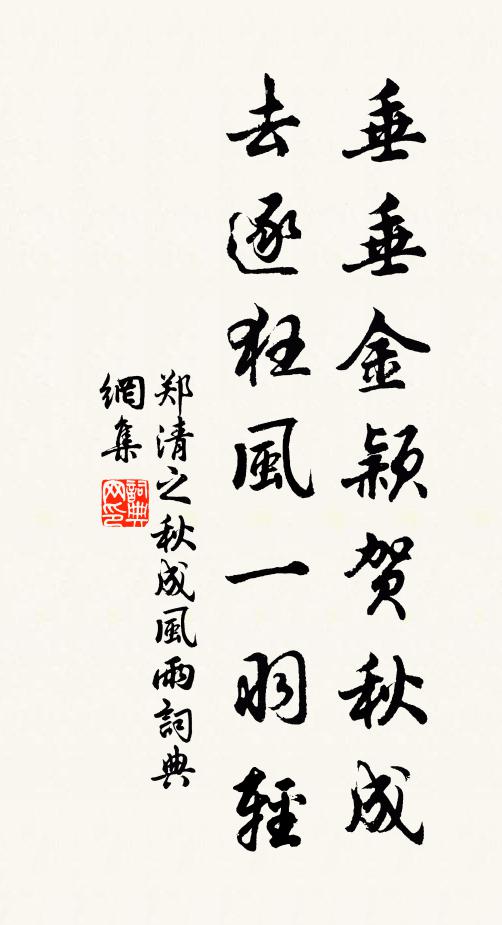 垂垂金颖贺秋成
去逐狂風一羽輕
郑清之秋成風雨詞典
網集
詞典
网印